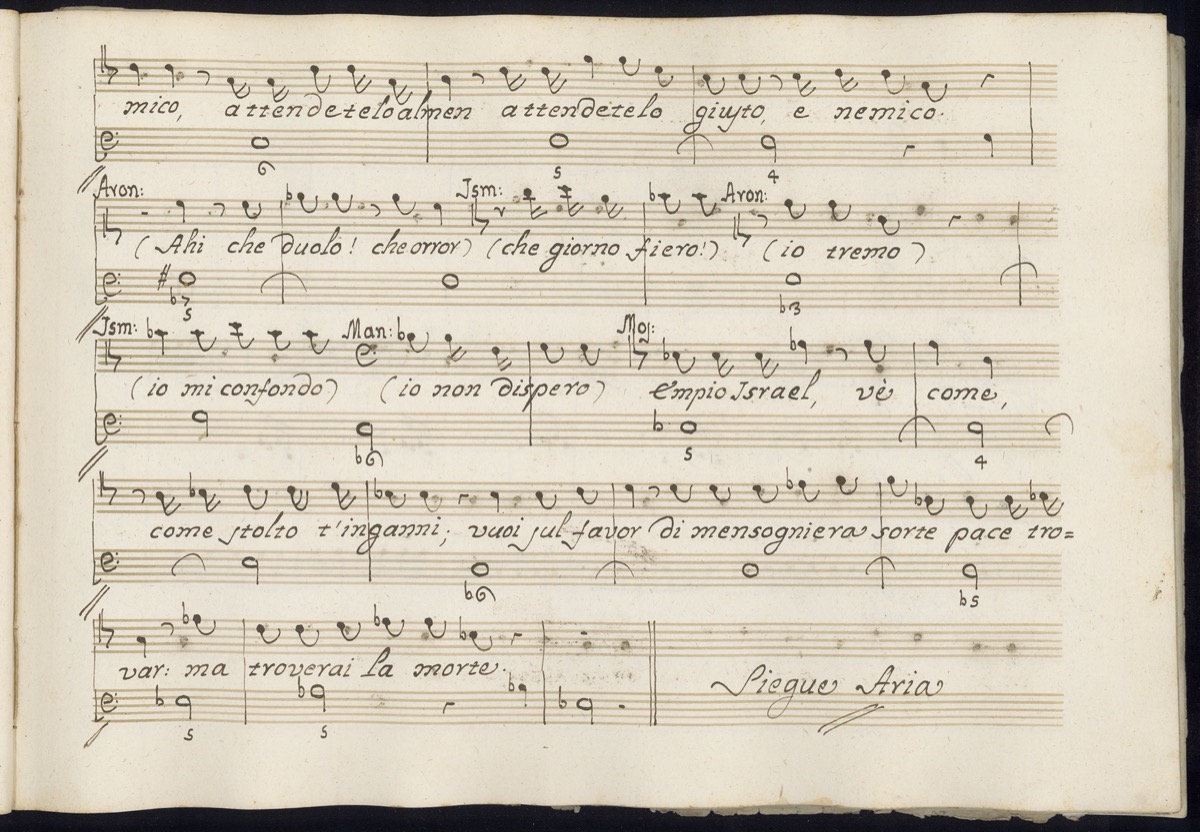 mico, attendetelo almen attendetelo giusto, e nemico.
6 5 4
Aron: Ism: Aron:
(Ahi che duolo! che orror) (che giorno fiero!) (io tremo)
♭7 5 ♭3
Ism: Man: Mos:
(io mi confondo) (io non dispero) Empio Israel, vè come,
♭6 5 4
come stolto t'inganni; vuoi sul favor di mensogniera sorte pace tro=
♭6 ♭5
var: ma troverai la morte.
Siegue Aria
5 5